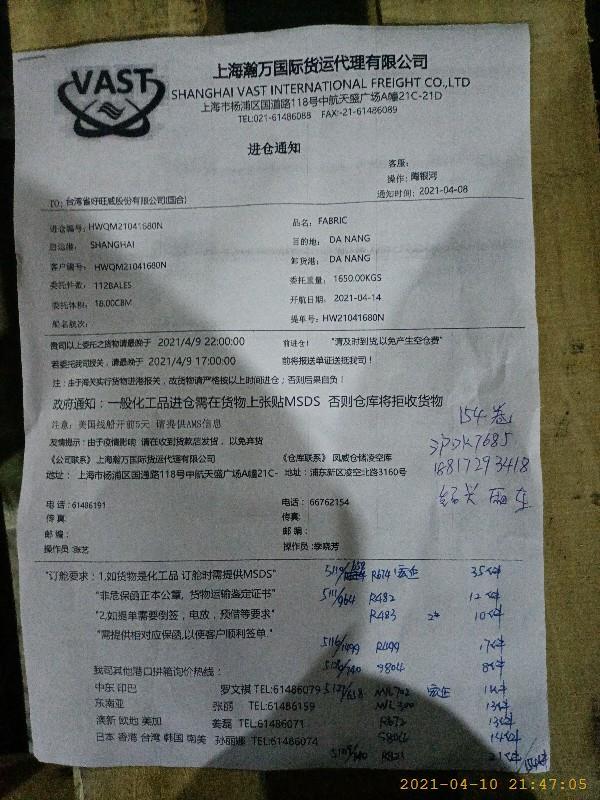 VAST
上海瀚万国际货运代理有限公司
SHANGHAI VAST INTERNATIONAL FREIGHT CO.,LTD
上海市杨浦区国道路118号中航天盛广场A幢21C-21D
TEL:021-61486088 FAX:-21-61486089
进仓通知
客服:
操作: 陶银河
通知时间: 2021-04-08
TO: 台湾省好旺威股份有限公司(国合)
进仓编号: HWQM21041680N 品名: FABRIC
启运港: SHANGHAI 目的地: DA NANG
客户编号: HWQM21041680N 卸货港: DA NANG
委托件数: 112BALES 委托重量: 1650.00KGS
委托体积: 18.00CBM 开航日期: 2021-04-14
船名航次: 提单号: HW21041680N
贵司以上委托之货物请最晚于 2021/4/9 22:00:00 前进仓! "请及时到货,以免产生空仓费"
若委托我司报关,请最晚于 2021/4/9 17:00:00 前将报送单证送抵我司!
注:由于海关实行货物进港报关,故货物请严格按以上时间进仓;否则后果自负!
政府通知:一般化工品进仓需在货物上张贴MSDS 否则仓库将拒收货物
注意:美国线船开前5天 请发送AMS信息
154卷
友情提示:由于疫情影响 请在收到货款后发货,以免弃货
沪DK7685
《公司联系》上海瀚万国际货运代理有限公司 《仓库联系》风威仓储凌空库
18817293418
地址: 上海市杨浦区国道路118号中航天盛广场A幢21C- 地址:浦东新区凌空北路3160号
电话: 61486191 电话: 66762154
传真: 传真:
邮编: 邮编:
操作员:张艺 操作员:李晓芳
"订舱要求:1,如货物是化工品 订舱时需提供MSDS"
R674 35件
"非危保函正本公章,货物运输鉴定证书"
R482 12件
"2,如提单需要倒签,电放,预借等要求"
R483 2# 10件
"需提供相对应保函,以使客户顺利签单."
R499 17件
9804 8件
我司其他港口拼箱询价热线:
中东 印巴 罗文祺 TEL:61486079
东南亚 张丽 TEL:61486159
13件
澳新 欧地 美加 姜磊 TEL:61486071
R672 13件
日本 香港 台湾 韩国 南美 孙丽娜 TEL:61486074
14件
R821 21件
2021-04-10 21:47:05